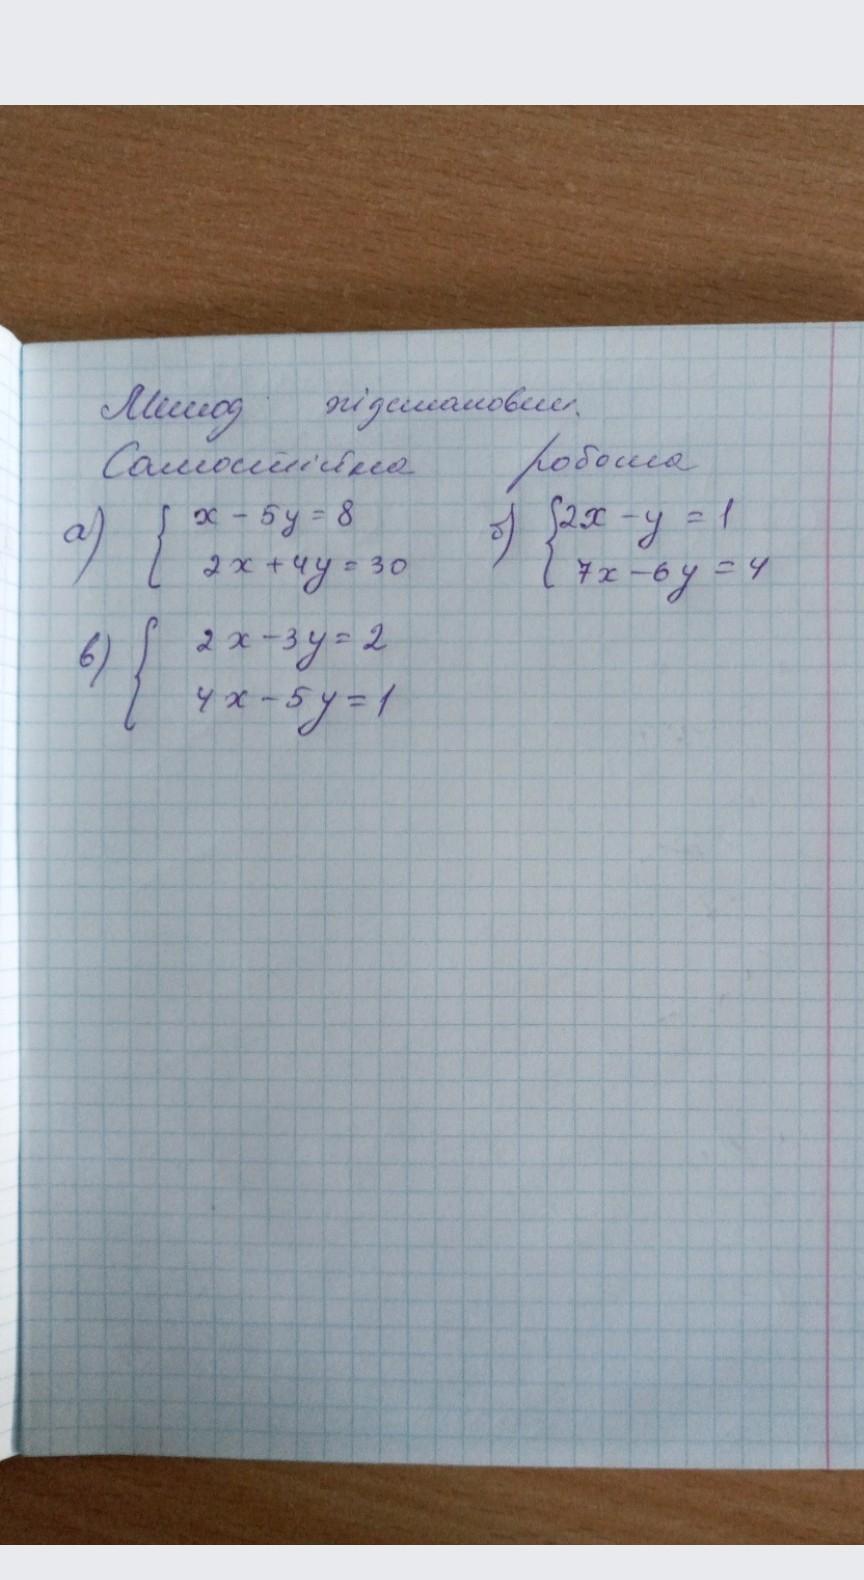 Метод підстановки.
Самостійна робота
а) { x - 5y = 8 б) { 2x - y = 1
2x + 4y = 30 7x - 6y = 4
в) { 2x - 3y = 2
4x - 5y = 1